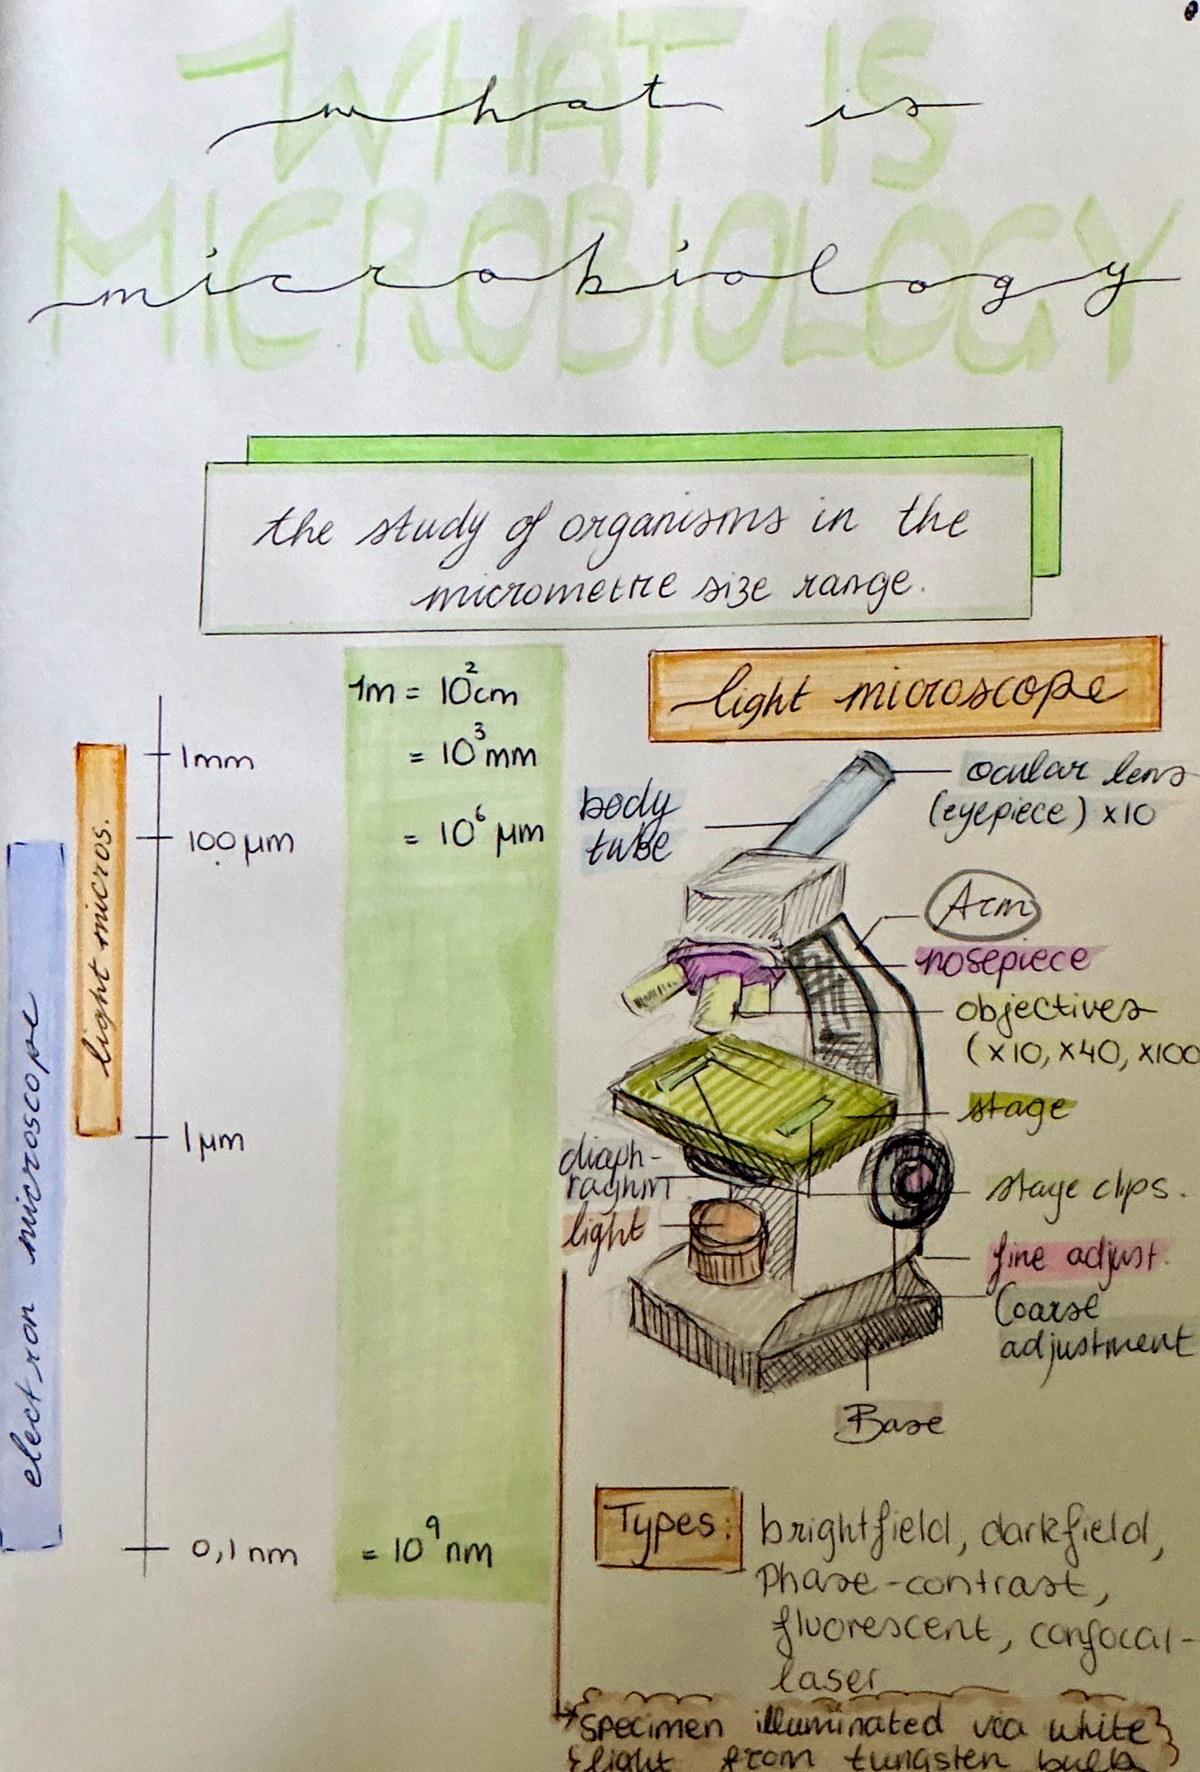 WHAT IS
what is
MICROBIOLOGY
microbiology
the study of organisms in the
micrometre size range.
1m = 10²cm
= 10³mm
= 10⁶ μm
= 10⁹ nm
1mm
100 μm
1μm
0,1 nm
light micros.
electron microscope
light microscope
ocular lens
(eyepiece) x10
body
tube
Arm
nosepiece
objectives
(x10, x40, x100
stage
diaph-
raghm
stage clips.
light
fine adjust.
Coarse
adjustment
Base
Types: brightfield, darkfield,
phase-contrast,
fluorescent, confocal-
laser
specimen illuminated via white
light from tungsten bulb